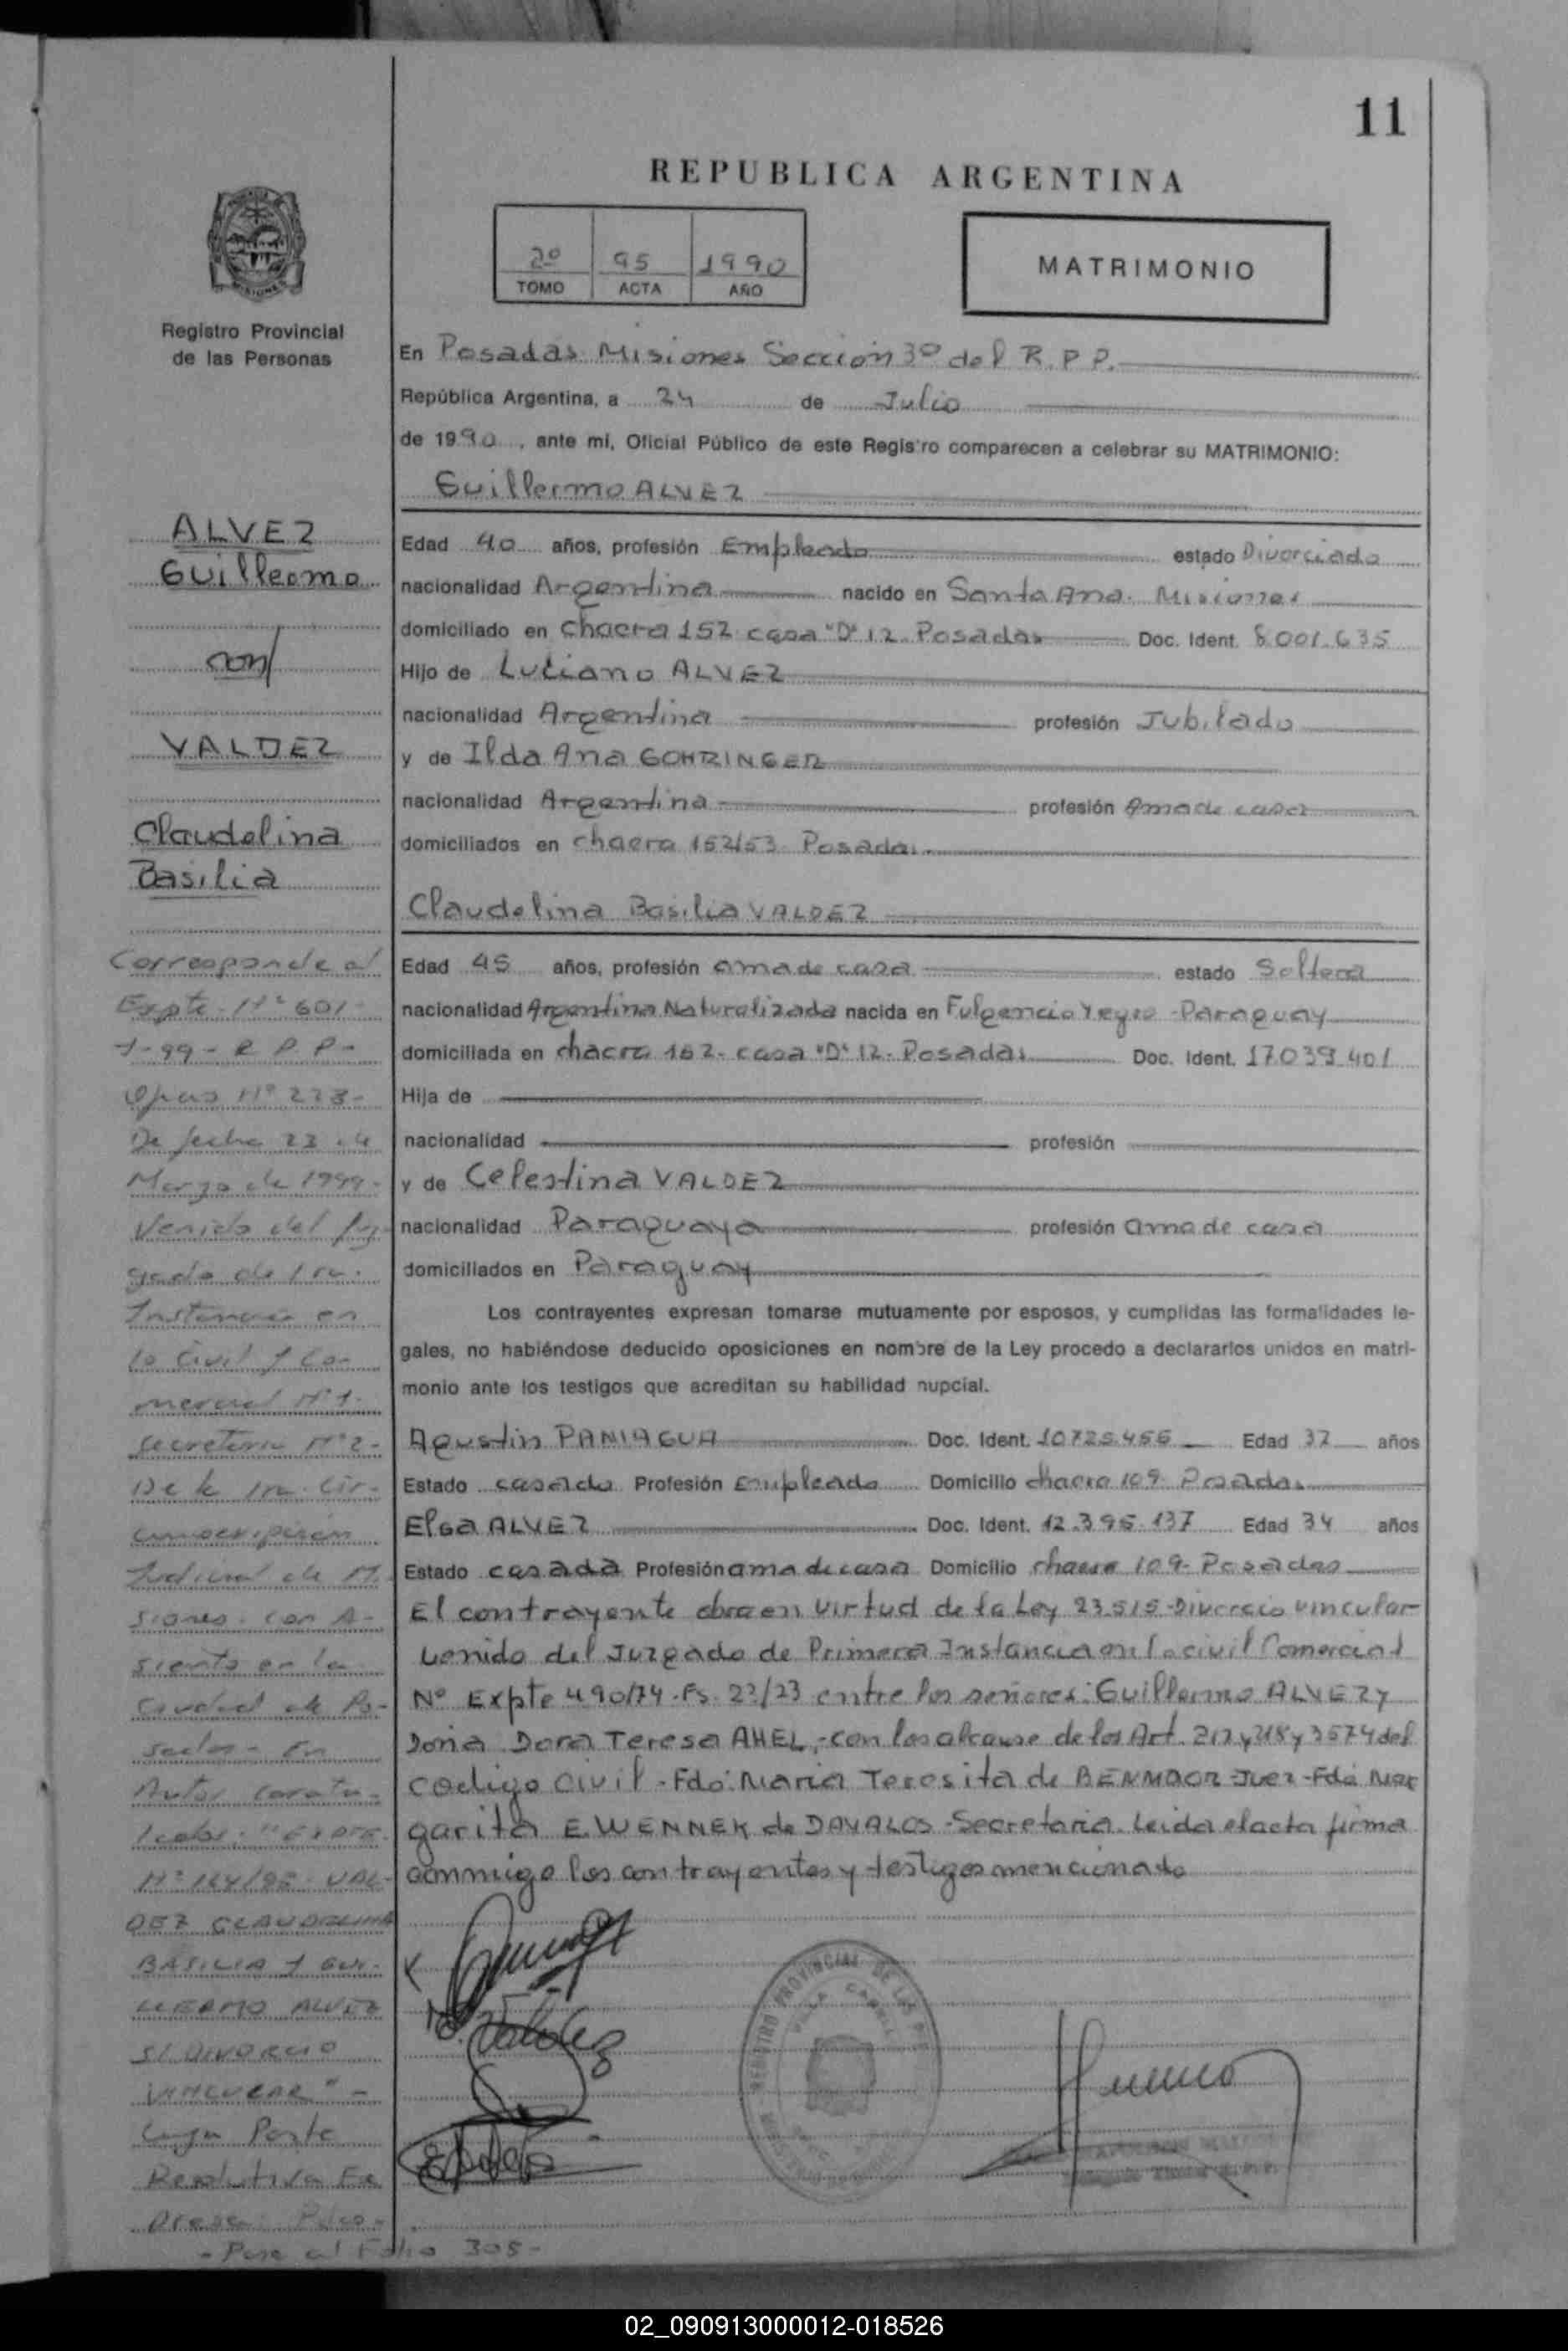 11
REPUBLICA ARGENTINA
2º 95 1990
TOMO ACTA AÑO
MATRIMONIO
MISIONES
Registro Provincial
de las Personas
En Posadas Misiones Sección 3º del R.P.P.
República Argentina, a 24 de Julio
de 1990, ante mí, Oficial Público de este Registro comparecen a celebrar su MATRIMONIO:
Guillermo ALVEZ
Edad 40 años, profesión Empleado estado Divorciado
nacionalidad Argentina nacido en Santa Ana. Misiones
domiciliado en chacra 152 casa "D" 12. Posadas Doc. Ident. 8.001.635
Hijo de Luciano ALVEZ
nacionalidad Argentina profesión Jubilado
y de Ilda Ana GOHRINGER
nacionalidad Argentina profesión Ama de casa
domiciliados en chacra 152/53 Posadas
Claudelina Basilia VALDEZ
Edad 45 años, profesión ama de casa estado Soltera
nacionalidad Argentina Naturalizada nacida en Fulgencio Yegro - Paraguay
domiciliada en chacra 152- casa "D" 12- Posadas Doc. Ident. 17.039.401
Hija de
nacionalidad profesión
y de Celestina VALDEZ
nacionalidad Paraguaya profesión ama de casa
domiciliados en Paraguay
Los contrayentes expresan tomarse mutuamente por esposos, y cumplidas las formalidades le-
gales, no habiéndose deducido oposiciones en nombre de la Ley procedo a declararlos unidos en matri-
monio ante los testigos que acreditan su habilidad nupcial.
Agustin PANIAGUA Doc. Ident. 10.725.456 Edad 37 años
Estado casado Profesión Empleado Domicilio chacra 109- Posadas
Elsa ALVEZ Doc. Ident. 12.396.137 Edad 34 años
Estado casada Profesión ama de casa Domicilio chacra 109- Posadas
El contrayente obra en virtud de la Ley 23.515-Divorcio vincular
venido del Juzgado de Primera Instancia en lo civil Comercial
Nº Expte 490/74-Fs. 22/23 entre los señores: Guillermo ALVEZ y
Doña Dora Teresa AHEL,-con los alcance de los Art. 217 y 218 y 3574 del
codigo civil-Fdo: Maria Teresita de BENMAOR-Juez-Fdo Mar
garita E. WENNEK de DAVALOS-Secretaria. Leida el acta firma
conmigo los contrayentes y testigos mencionado
ALVEZ
Guillermo
con
VALDEZ
Claudelina
Basilia
Corresponde al
Expte. Nº 601-
J-99-R.P.P-
Nº 223-
De fecha 23 de
Marzo de 1999-
Venido del Juz-
gado de 1ra.
Instancia en
lo Civil y Co-
mercial Nº 1-
Secretaria Nº 2-
De la 1ra. Cir-
cunscripción
Judicial de Mi-
siones- con A-
siento en la
Ciudad de Po-
sadas- En
Autos caratu-
lados: "EXPTE.
Nº 144/98- VAL-
DEZ CLAUDELINA
BASILIA Y GUI-
LLERMO ALVEZ
S/ DIVORCIO
VINCULAR"-
Cuya Parte
Resolutiva Ex
presa:
- Pase al Folio 305-
REGISTRO PROVINCIAL DE LAS
02_090913000012-018526